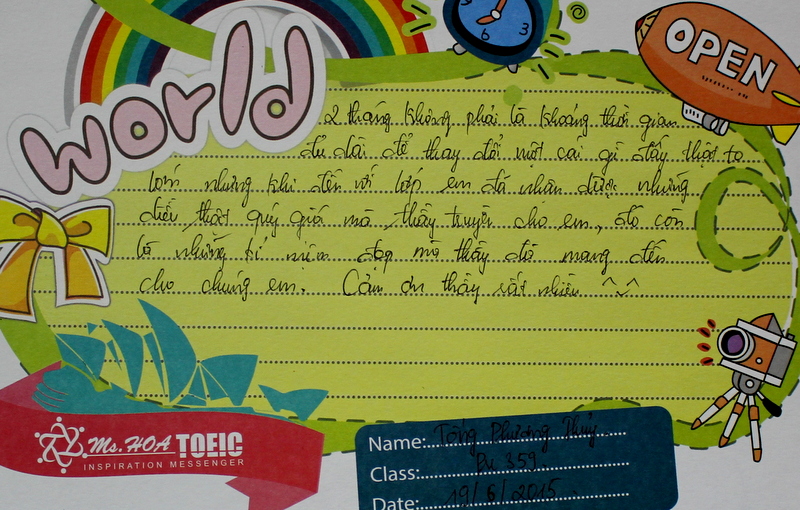 world
6
3
OPEN
2 tháng không phải là khoảng thời gian
đủ dài để thay đổi một cái gì đấy thật to
lớn nhưng khi đến với lớp em đã nhận được những
điều thật quý giá mà thầy truyền cho em, đó còn
là những kỉ niệm đẹp mà thầy đã mang đến
cho chúng em. Cảm ơn thầy rất nhiều ^^
Ms. HOA TOEIC
INSPIRATION MESSENGER
Name: Tống Phương Thúy
Class: Pu 359
Date: 19/6/2015